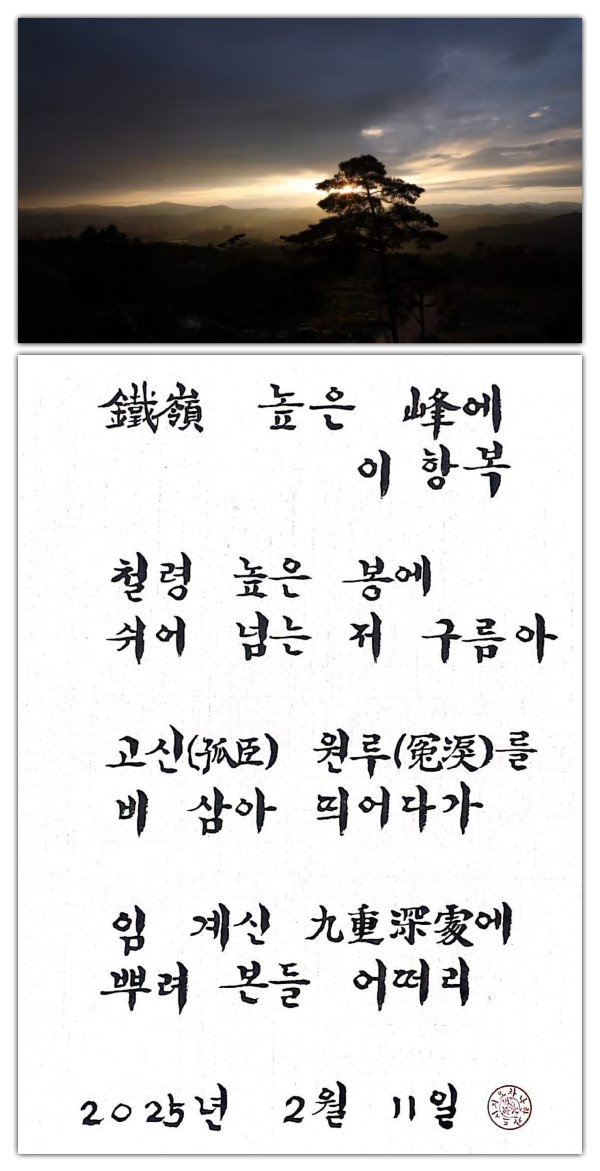 鐵嶺 높은 峰에
이항복
철령 높은 봉에
쉬어 넘는 저 구름아
고신(孤臣) 원루(冤淚)를
비 삼아 띄어다가
임 계신 九重深處에
뿌려 본들 어떠리
2025년 2월 11일